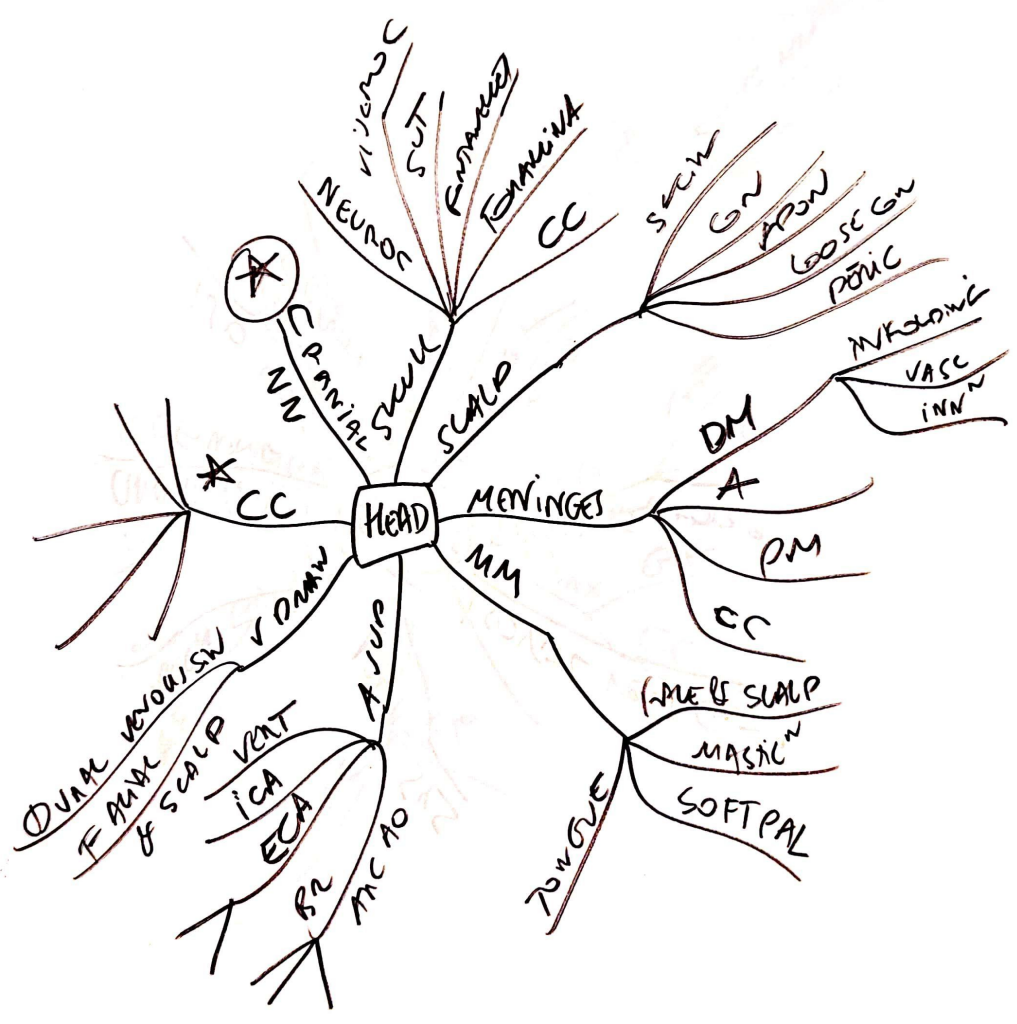 HEAD
CRANIAL
NN
SKULL
NEUROC
VISCEROC
SUT
FONTANELLES
FORAMINA
CC
SCALP
SKIN
CN
APON
LOOSE CN
PERIC
MENINGES
DM
INFOLDING
VASC
INN^N
A
PM
CC
MM
FACE & SCALP
MASTIC^N
SOFT PAL
TONGUE
A SUP
VERT
ICA
ECA
BR
ARC AO
V DRAIN
DURAL VENOUS SIN
FACIAL
& SCALP
CC